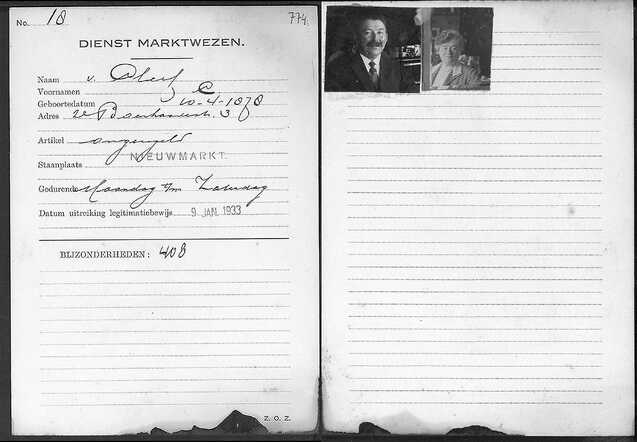 No. 18 774.
DIENST MARKTWEZEN.
Naam v.
Voornamen C
Geboortedatum 10-4-1878
Adres 3
Artikel ongeregeld
NIEUWMARKT.
Staanplaats
Gedurende Maandag t/m Zaterdag
Datum uitreiking legitimatiebewijs 9 JAN. 1933
BIJZONDERHEDEN: 408
Z. O. Z.